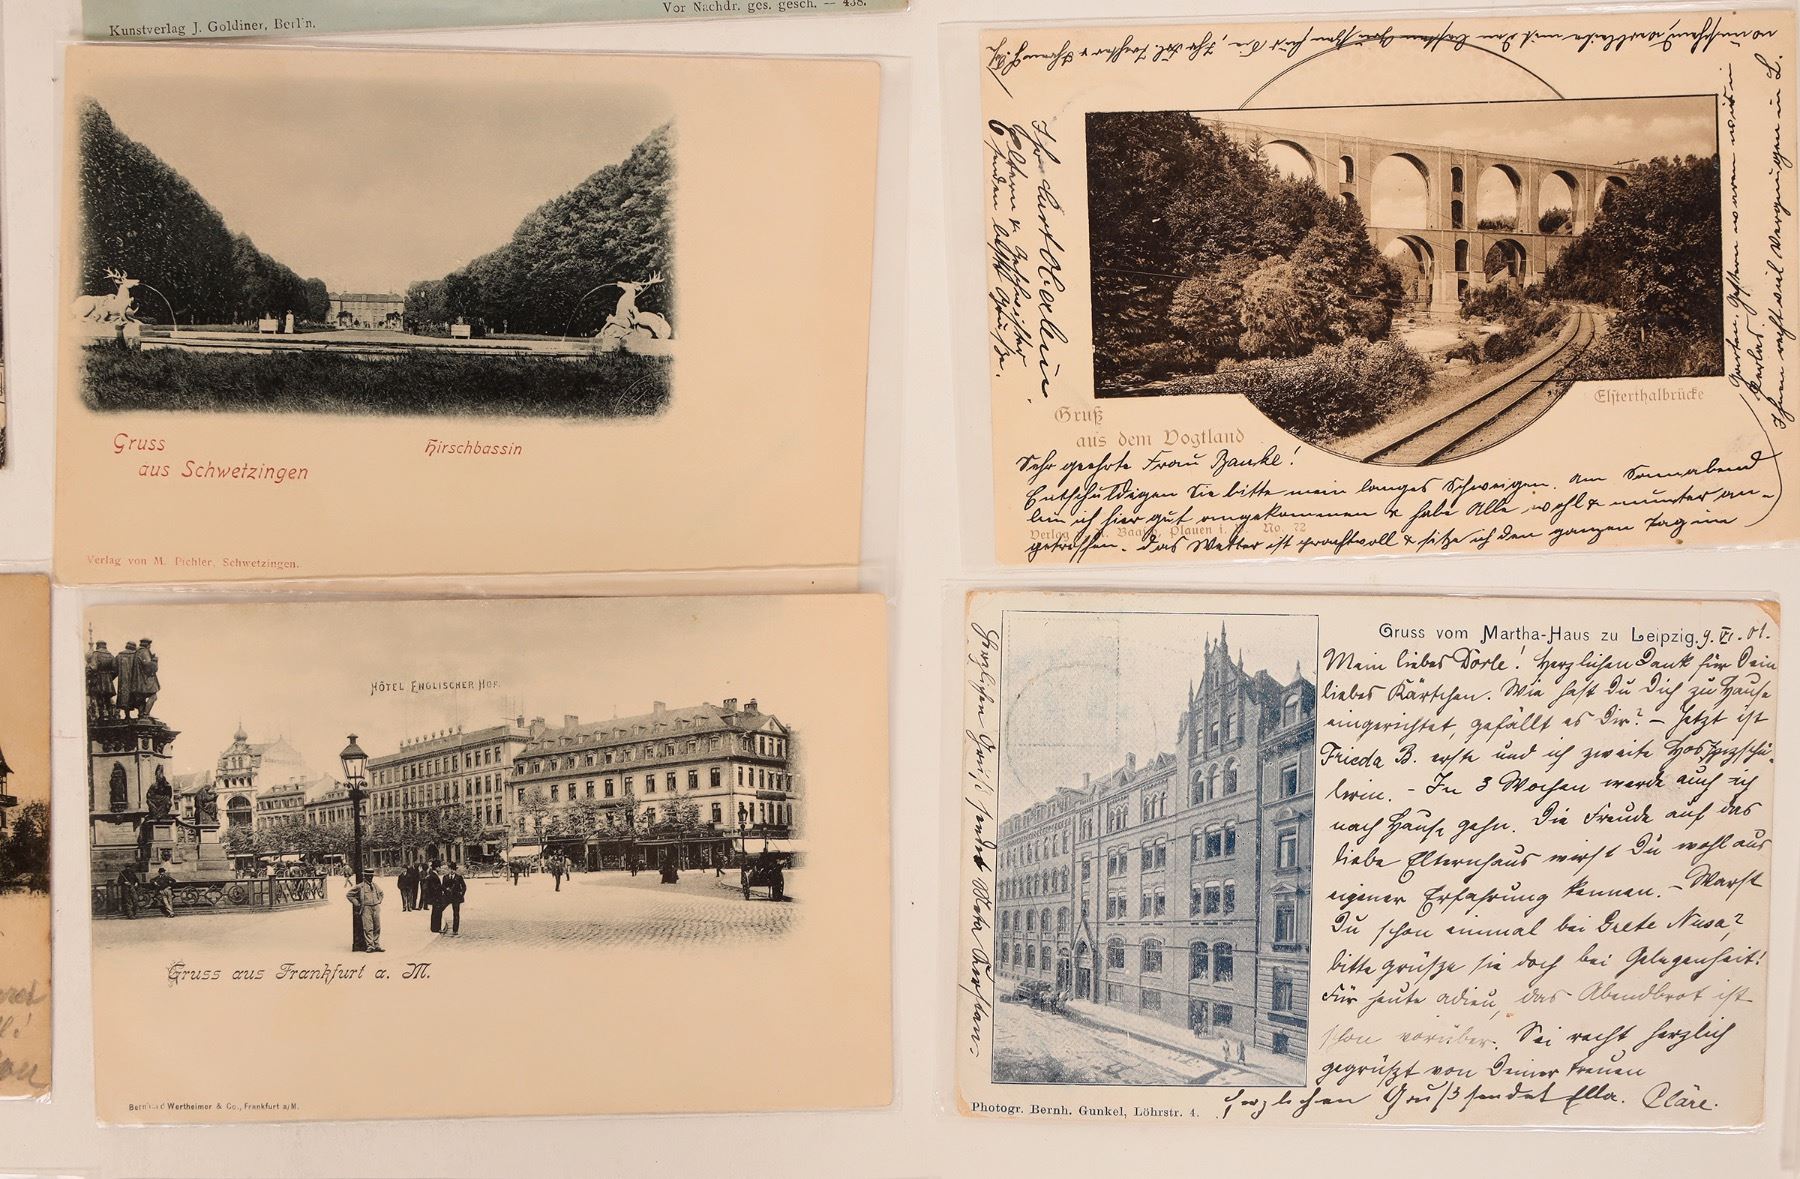 Kunstverlag J. Goldiner, Berlin.
Vor Nachdr. ges. gesch. — 438.
Gruss
aus Schwetzingen
Hirschbassin
Verlag von M. Pichler, Schwetzingen.
Gruß
aus dem Vogtland
Elsterthalbrücke
Sehr geehrte Frau Banke!
Entschuldigen Sie bitte mein langes Schweigen. Am Sonnabend
bin ich hier gut angekommen & habe Alle wohl & munter an-
getroffen. Das Wetter ist prachtvoll & sitze ich den ganzen Tag im
Verlag Plauen i. No. 72
Garten. Gestern waren wir in
Ihnen recht viel Vergnügen in L.
Ihr Curt
Eltern & Geschwister
senden beste Grüße.
HÔTEL ENGLISCHER HOF.
Gruss aus Frankfurt a. M.
Bernhard Wertheimer & Co., Frankfurt a/M.
Gruss vom Martha-Haus zu Leipzig. 9. VI. 01.
Mein liebes Dorle! Herzlichen Dank für Dein
liebes Kärtchen. Wie hast Du Dich zu Hause
eingerichtet, gefällt es Dir? – Jetzt ist
Frieda B. erste und ich zweite Hospizschü-
lerin. – In 3 Wochen werde auch ich
nach Hause gehn. Die Freude auf das
liebe Elternhaus wirst Du wohl aus
eigener Erfahrung kennen. – Warst
Du schon einmal bei Grete
bitte grüsze sie doch bei Gelegenheit!
Für heute adieu, das Abendbrot ist
schon vorüber. Sei recht herzlich
gegrüszt von Deiner treuen
Cläre.
Herzlichen Gruß sendet Ella.
Herzlichen Gruß sendet Meta
Photogr. Bernh. Gunkel, Löhrstr. 4.